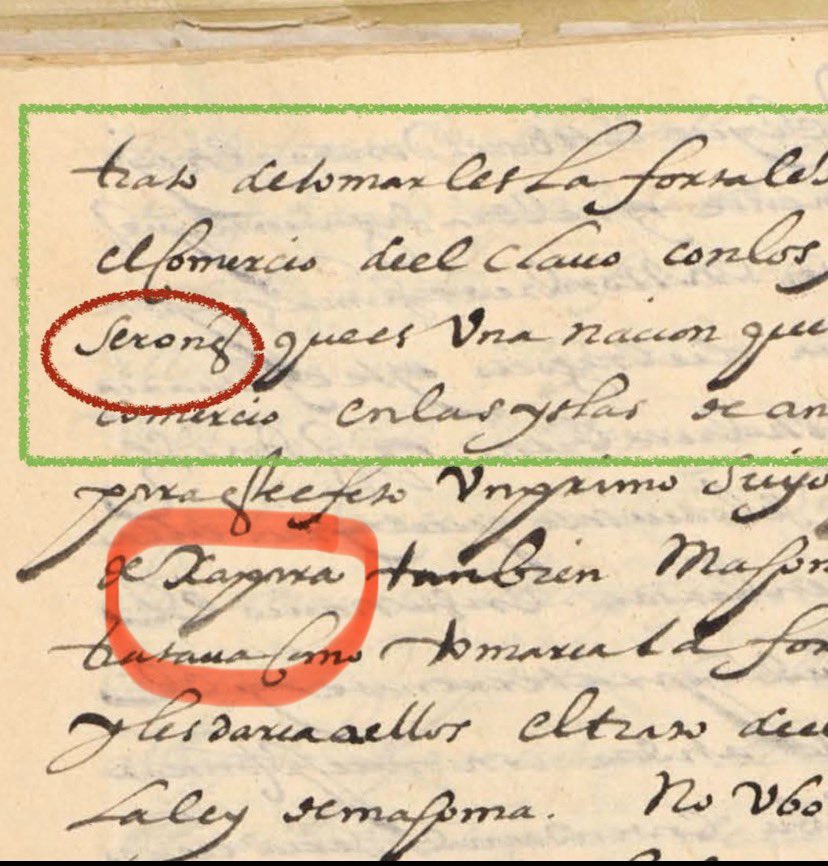 trato detomarles La fortale
el Comercio deel Clauo conlos
Serong quees Vna nacion que
comercio enlas yslas de an
para este efeto Vn primo Suyo
de Xappra tanbien Mahom
trataua Como tomaria La for
y les daria a ellos el trato deel
La ley de mahoma. No Vbo